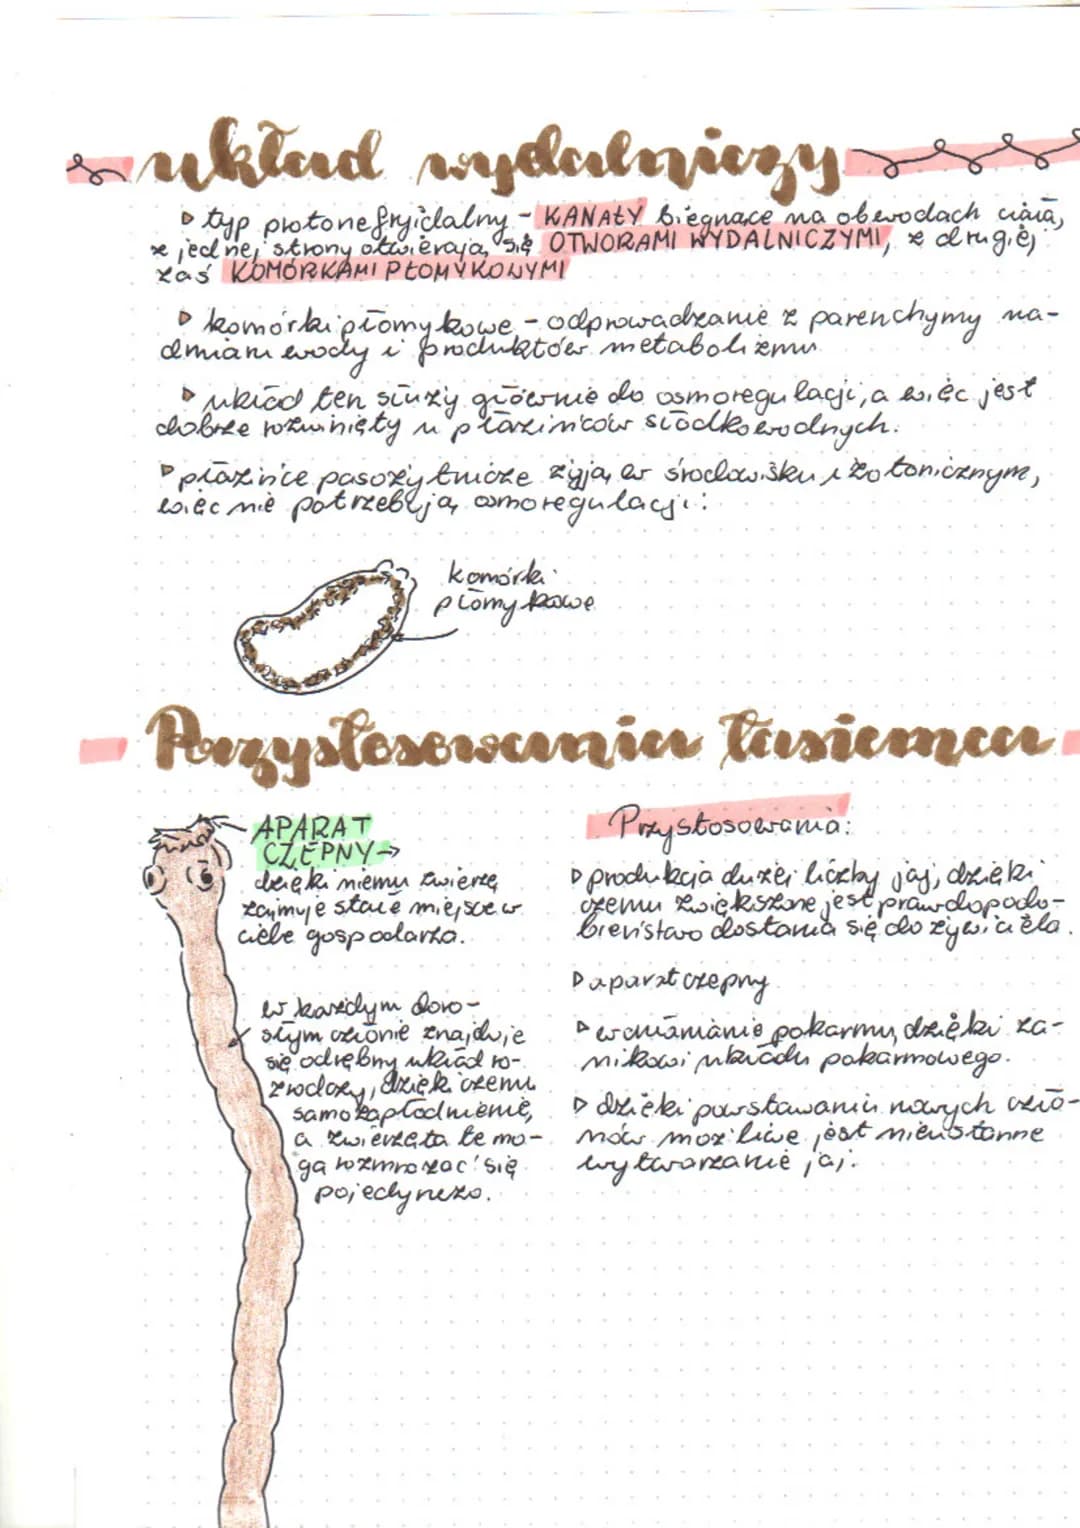 układ wydalniczy
▷ typ protonefrydialny - KANAŁY biegnące na obwodach ciała,
z jednej strony otwierają się OTWORAMI WYDALNICZYMI, z drugiej
zaś KOMÓRKAMI PŁOMYKOWYMI
▷ komórki płomykowe - odprowadzanie z parenchymy na-
dmiaru wody i produktów metabolizmu
▷ układ ten służy głównie do osmoregulacji, a więc jest
dobrze rozwinięty u płazińców słodkowodnych.
▷ płazińce pasożytnicze żyją w środowisku izotonicznym,
więc nie potrzebują osmoregulacji.
komórki
płomykowe
Przystosowania tasiemca
APARAT
CZEPNY →
dzięki niemu zwierzę
zajmuje stałe miejsce w
ciele gospodarza.
w każdym doro-
słym członie znajduje
się odrębny układ ro-
zrodczy, dzięki czemu
samozapłodnienie,
a zwierzęta te mo-
gą rozmnażać się
pojedynczo.
Przystosowania:
▷ produkcja dużej liczby jaj, dzięki
czemu zwiększone jest prawdopodo-
bieństwo dostania się do żywiciela.
▷ aparat czepny
▷ wchłanianie pokarmu, dzięki za-
nikowi układu pokarmowego.
▷ dzięki powstawaniu nowych czło-
nów możliwe jest nieustanne
wytwarzanie jaj.